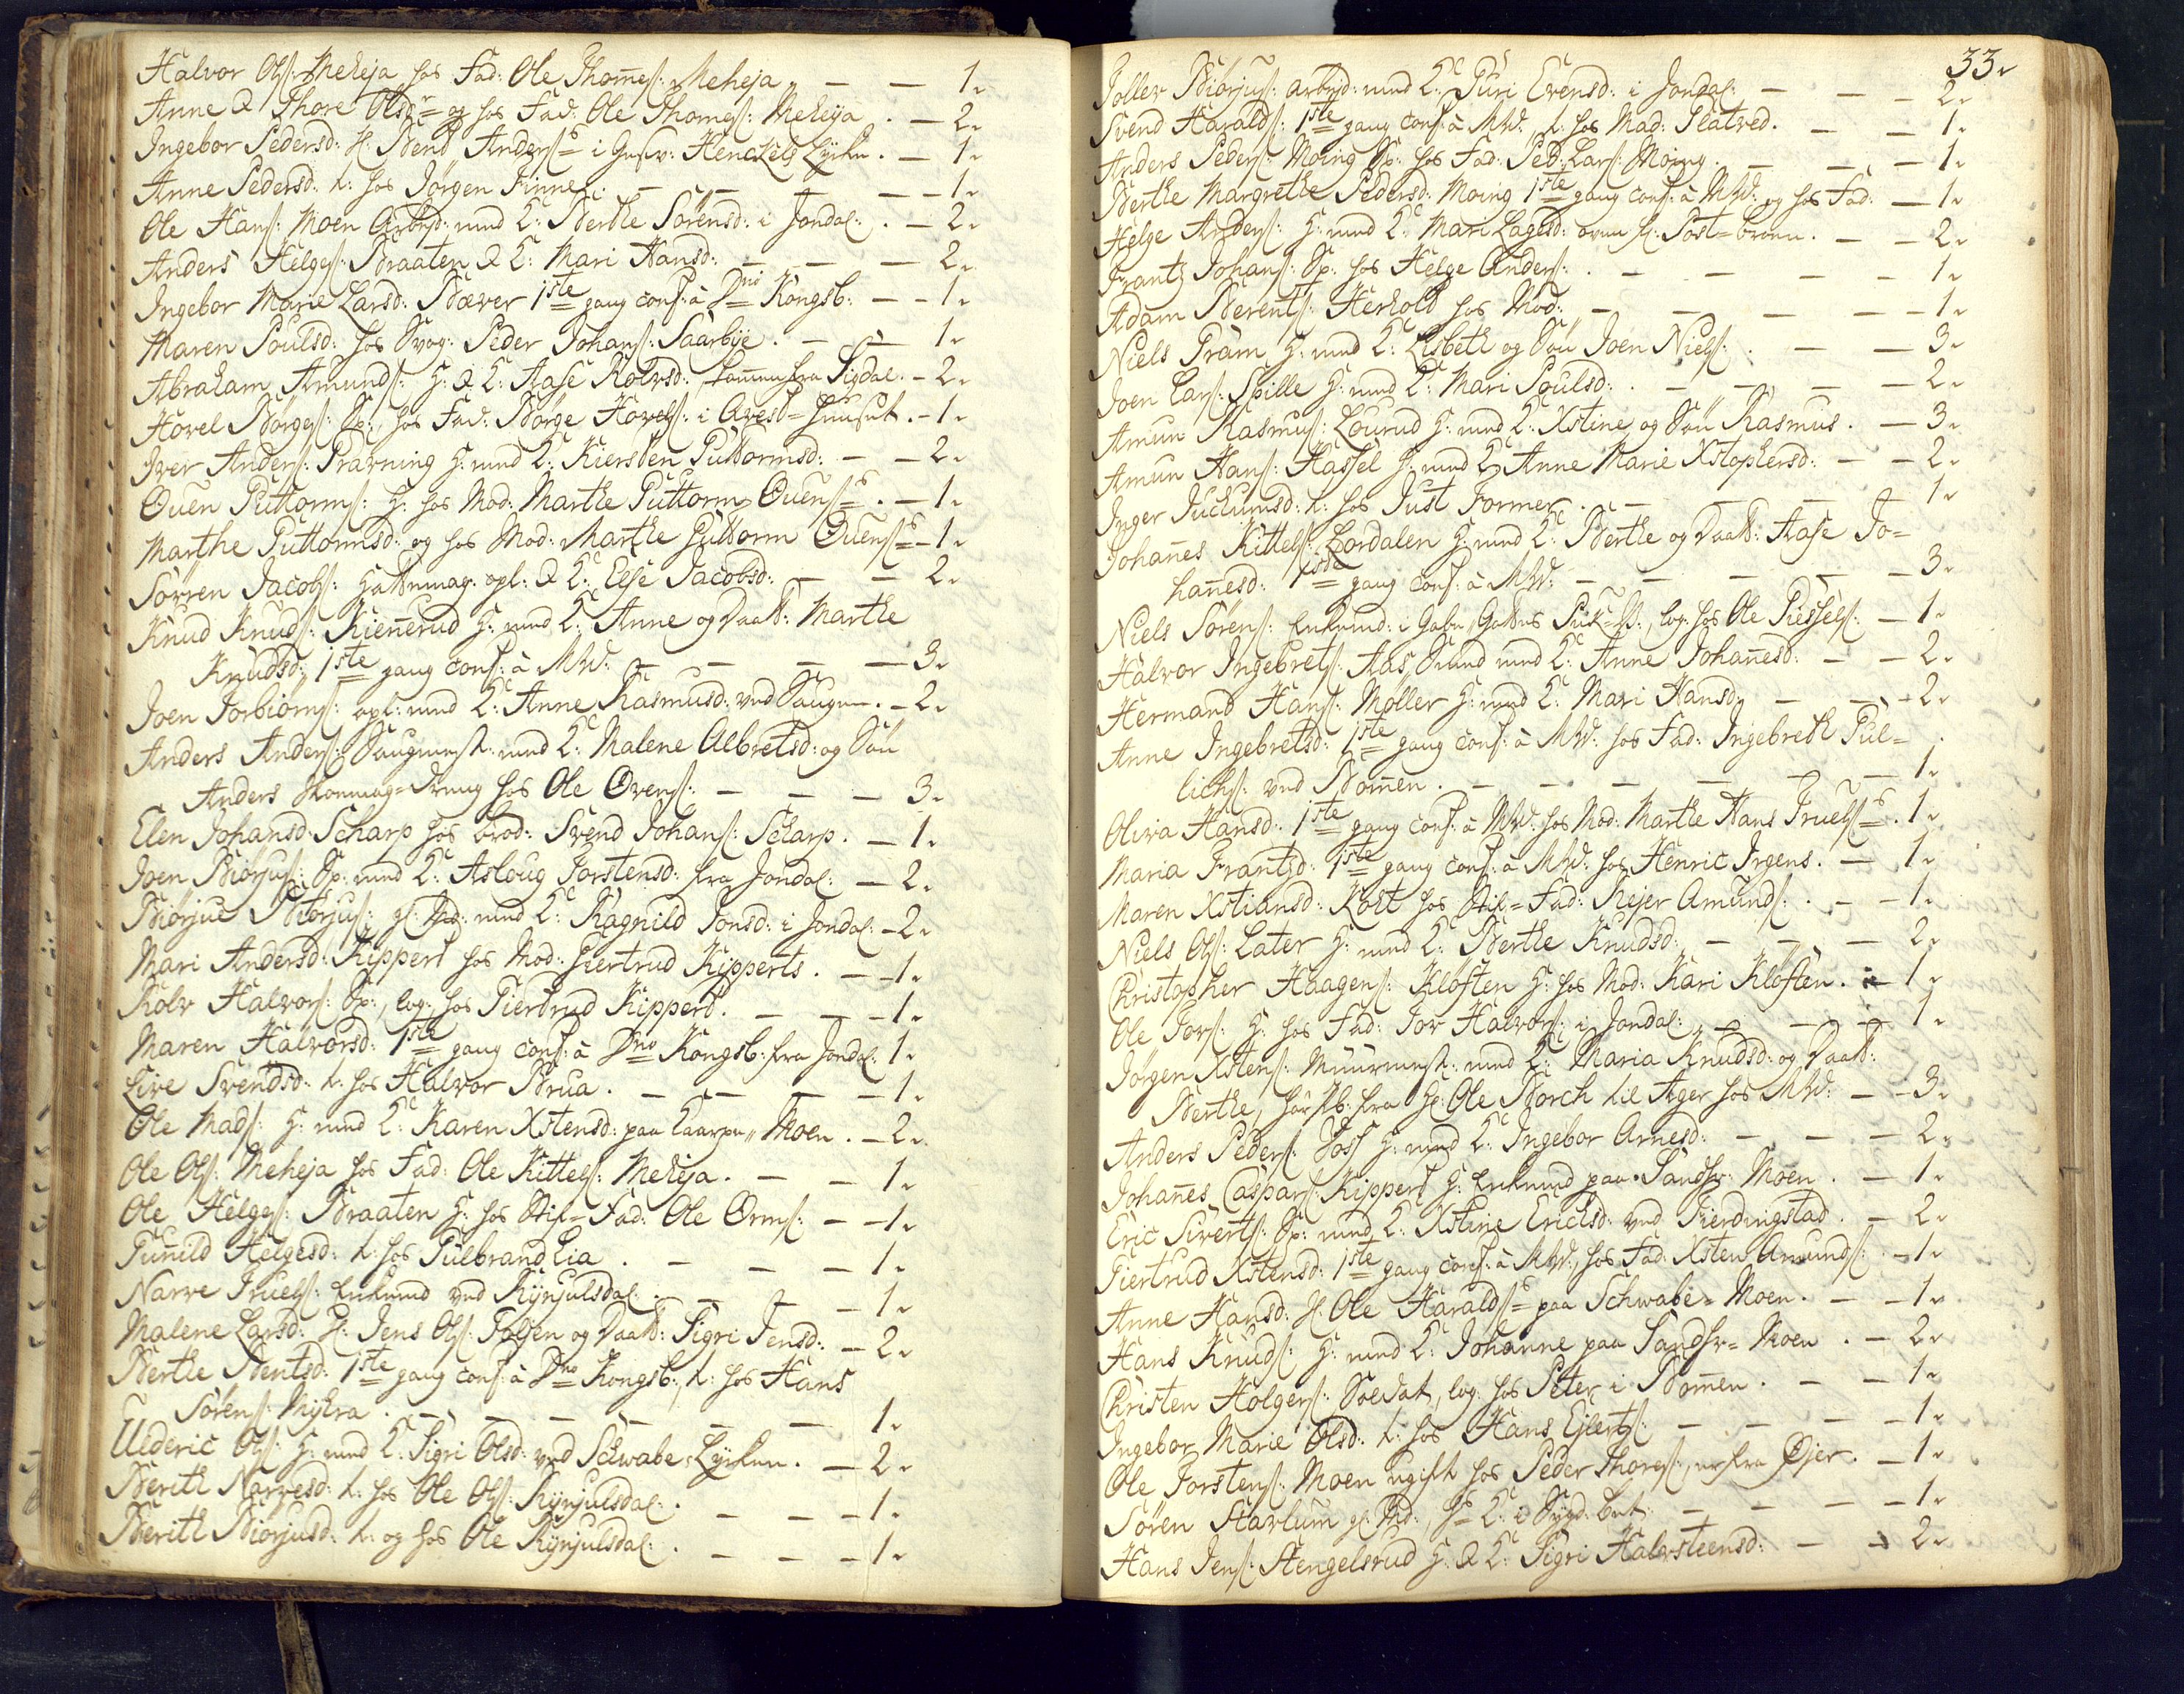 Halvor Ols: Meheja hos Fad: Ole Thomes: Meheja. — — 1.
Anne & Thore Olsdr og hos Fad: Ole Thomes: Meheja. — 2.
Ingebor Pedersd: H: Bend Anders: i Huusv: Henckels Lycke. — 1.
Anne Pedersd: t: hos Jørgen Finne. — — — 1.
Ole Hans: Moen Arbejd: med K: Berthe Sørensd: i Jondal: — 2.
Anders Helges: Braaten & K: Mari Hansd: — — 2.
Ingebor Marie Larsd: Bæver 1ste gang conf: à Dno Kongsb: — 1.
Maren Poulsd: hos Svog: Peder Johans: Saarbye. — — 1.
Abraham Amunds: G: & K: Aase Rolvsd: kommen fra Sigdal. — 2.
Hovel Børges: Sp: hos Fad: Børge Hovels: i Arrest-Huuset. — 1.
Iver Anders: Pravning G: med K: Kiersten Guttormsd: — 2.
Ouen Guttorms: G: hos Mod: Marthe Guttorm Ouens: — 1.
Marthe Guttormsd: og hos Mod: Marthe Guttorm Ouens: — 1.
Sørren Jacobs: Hattemag: opl: & K: Else Jacobsd: — — 2.
Knud Knuds: Kiennerud G: med K: Anne og Daatt: Marthe
Knudsd: 1ste gang conf: à MW: — — — 3.
Joen Torbiørns: opl: med K: Anne Rasmusd: ved Saugen. — 2.
Anders Anders: Saugmest: med K: Malene Albretsd: og Søn
Anders Skoemag-Dreng hos Ole Ovens: — — — 3.
Elen Johansd: Scharp hos brod: Svend Johans: Scharp. — 1.
Joen Biørjus: Sp: med K: Asloug Torstensd: fra Jondal: — 2.
Biørjue Biørjus: gl: Md: med K: Ragnild Jonsd: i Jondal: — 2.
Mari Andersd: Kippert hos Mod: Giertrud Kipperts. — 1.
Rolv Halvors: Sp:, log: hos Giertrud Kippert. — — 1.
Maren Halvorsd: 1ste gang conf: à Dno Kongsb: fra Jondal: 1.
Live Svendsd: t: hos Halvor Brua. — — — 1.
Ole Mads: G: med K: Karen Xstensd: paa Kaarpe-Moen. — 2.
Ole Ols: Meheja hos Fad: Ole Kittels: Meheja. — — 1.
Ole Helges: Braaten G: hos Stif-Fad: Ole Orms: — 1.
Gunild Helgesd: t: hos Gulbrand Lia. — — — 1.
Narve Truels: Enkemd ved Kynjulsdal: — — — 1.
Malene Larsd: H: Jens Ols: Foljen og Daatt: Sigri Jensd: — 2.
Berthe Bentsd: 1ste gang conf: à Dno Kongsb:, t: hos Hans
Sørens: Myhra. — — — — — 1.
Ulderic Ols: G: med K: Sigri Olsd: ved Schwabe-Lycken. — 2.
Berith Narvesd: t: hos Ole Ols: Kynjulsdal: — — 1.
Berith Biørjusd: t: og hos Ole Kynjulsdal: — — 1.
33.
Joller Biørjus: Arbejd: med K: Guri Evensd: i Jondal: — — 2.
Svend Haralds: 1ste gang conf: à MW:, t: hos Mad: Platved. — — 1.
Anders Peders: Moing Sp: hos Fad: Ped: Lars: Moing. — — 1.
Berthe Margrethe Pedersd: Moing 1ste gang conf: à MW: og hos Fad: — 1.
Helge Anders: G: med K: Mari Lagesd: oven f: Post-broen. — 2.
Frantz Johans: Sp: hos Helge Anders: — — — 1.
Adam Berents: Herhold hos Mod: — — — 1.
Niels Pram G: med K: Lisbeth og Søn Joen Niels: — — 3.
Joen Lars: Spille G: med K: Mari Poulsd: — — — 2.
Amun Rasmus: Lourud G: med K: Xstine og Søn Rasmus. — 3.
Amun Hans: Hassel G: med K: Anne Marie Xstophersd: — 2.
Inger Juckumsd: t: hos Just Former. — — — 1.
Johannes Kittels: Lordalen G: med K: Berthe og Daatt: Aase Jo-
hannesd: 1ste gang conf: à MW: — — — — 3.
Niels Sørens: Enkemd: i Gabe Gottes, log: hos Ole Giessels: — 1.
Halvor Ingebrets: Aas, Svend med K: Anne Johannesd: — 2.
Hermand Hans: Møller G: med K: Mari Hansd: — — 2.
Anne Ingebretsd: 1ste gang conf: à MW: hos Fad: Ingebreth Gul-
lichs: ved Bommen. — — — — — 1.
Oliva Hansd: 1ste gang conf: à MW: hos Mod: Marthe Hans Truels: 1.
Maria Frantzd: 1ste gang conf: à MW: hos Henric Irgens. — 1.
Maren Xstiansd: Kort hos Stif-Fad: Rejer Amunds: — 1.
Niels Ols: Later G: med K: Berthe Knudsd: — — — 2.
Christopher Haagens: Kløften G: hos Mod: Kari Kløften. — 1.
Ole Tors: G: hos Fad: Tor Halvors: i Jondal: — — — 1.
Jørgen Xstens: Muurmest: med K: Maria Knudsd: og Daatt:
Berthe, har Att: fra Hr: Ole Borch til Ager hos MW: — 3.
Anders Peders: Foss G: med K: Ingebor Arnesd: — — 2.
Johannes Caspars: Kippert G: Enkemd paa Sandsv: Moen. — 1.
Eric Siverts: Sp: med K: Xstine Ericksd: ved Fierdingstad. — 2.
Giertrud Xstensd: 1ste gang conf: à MW:, hos Fad: Xsten Amunds: — 1.
Anne Hansd: H: Ole Haralds: paa Schwabe-Moen. — 1.
Hans Knuds: G: med K: Johanne paa Sandsv-Moen. — 2.
Christen Holgers: Soldat, log: hos Peter i Bommen. — — 1.
Ingebor Marie Olsd: t: hos Hans Ejlerts: — — — 1.
Ole Torstens: Moen ugift hos Peder Thores:, er fra Øjer. — 1.
Søren Harlum gl: Md:, K: i Syge: — — — 1.
Hans Jens: Stengelsrud G: & K: Sigri Halvsteensd: — 2.